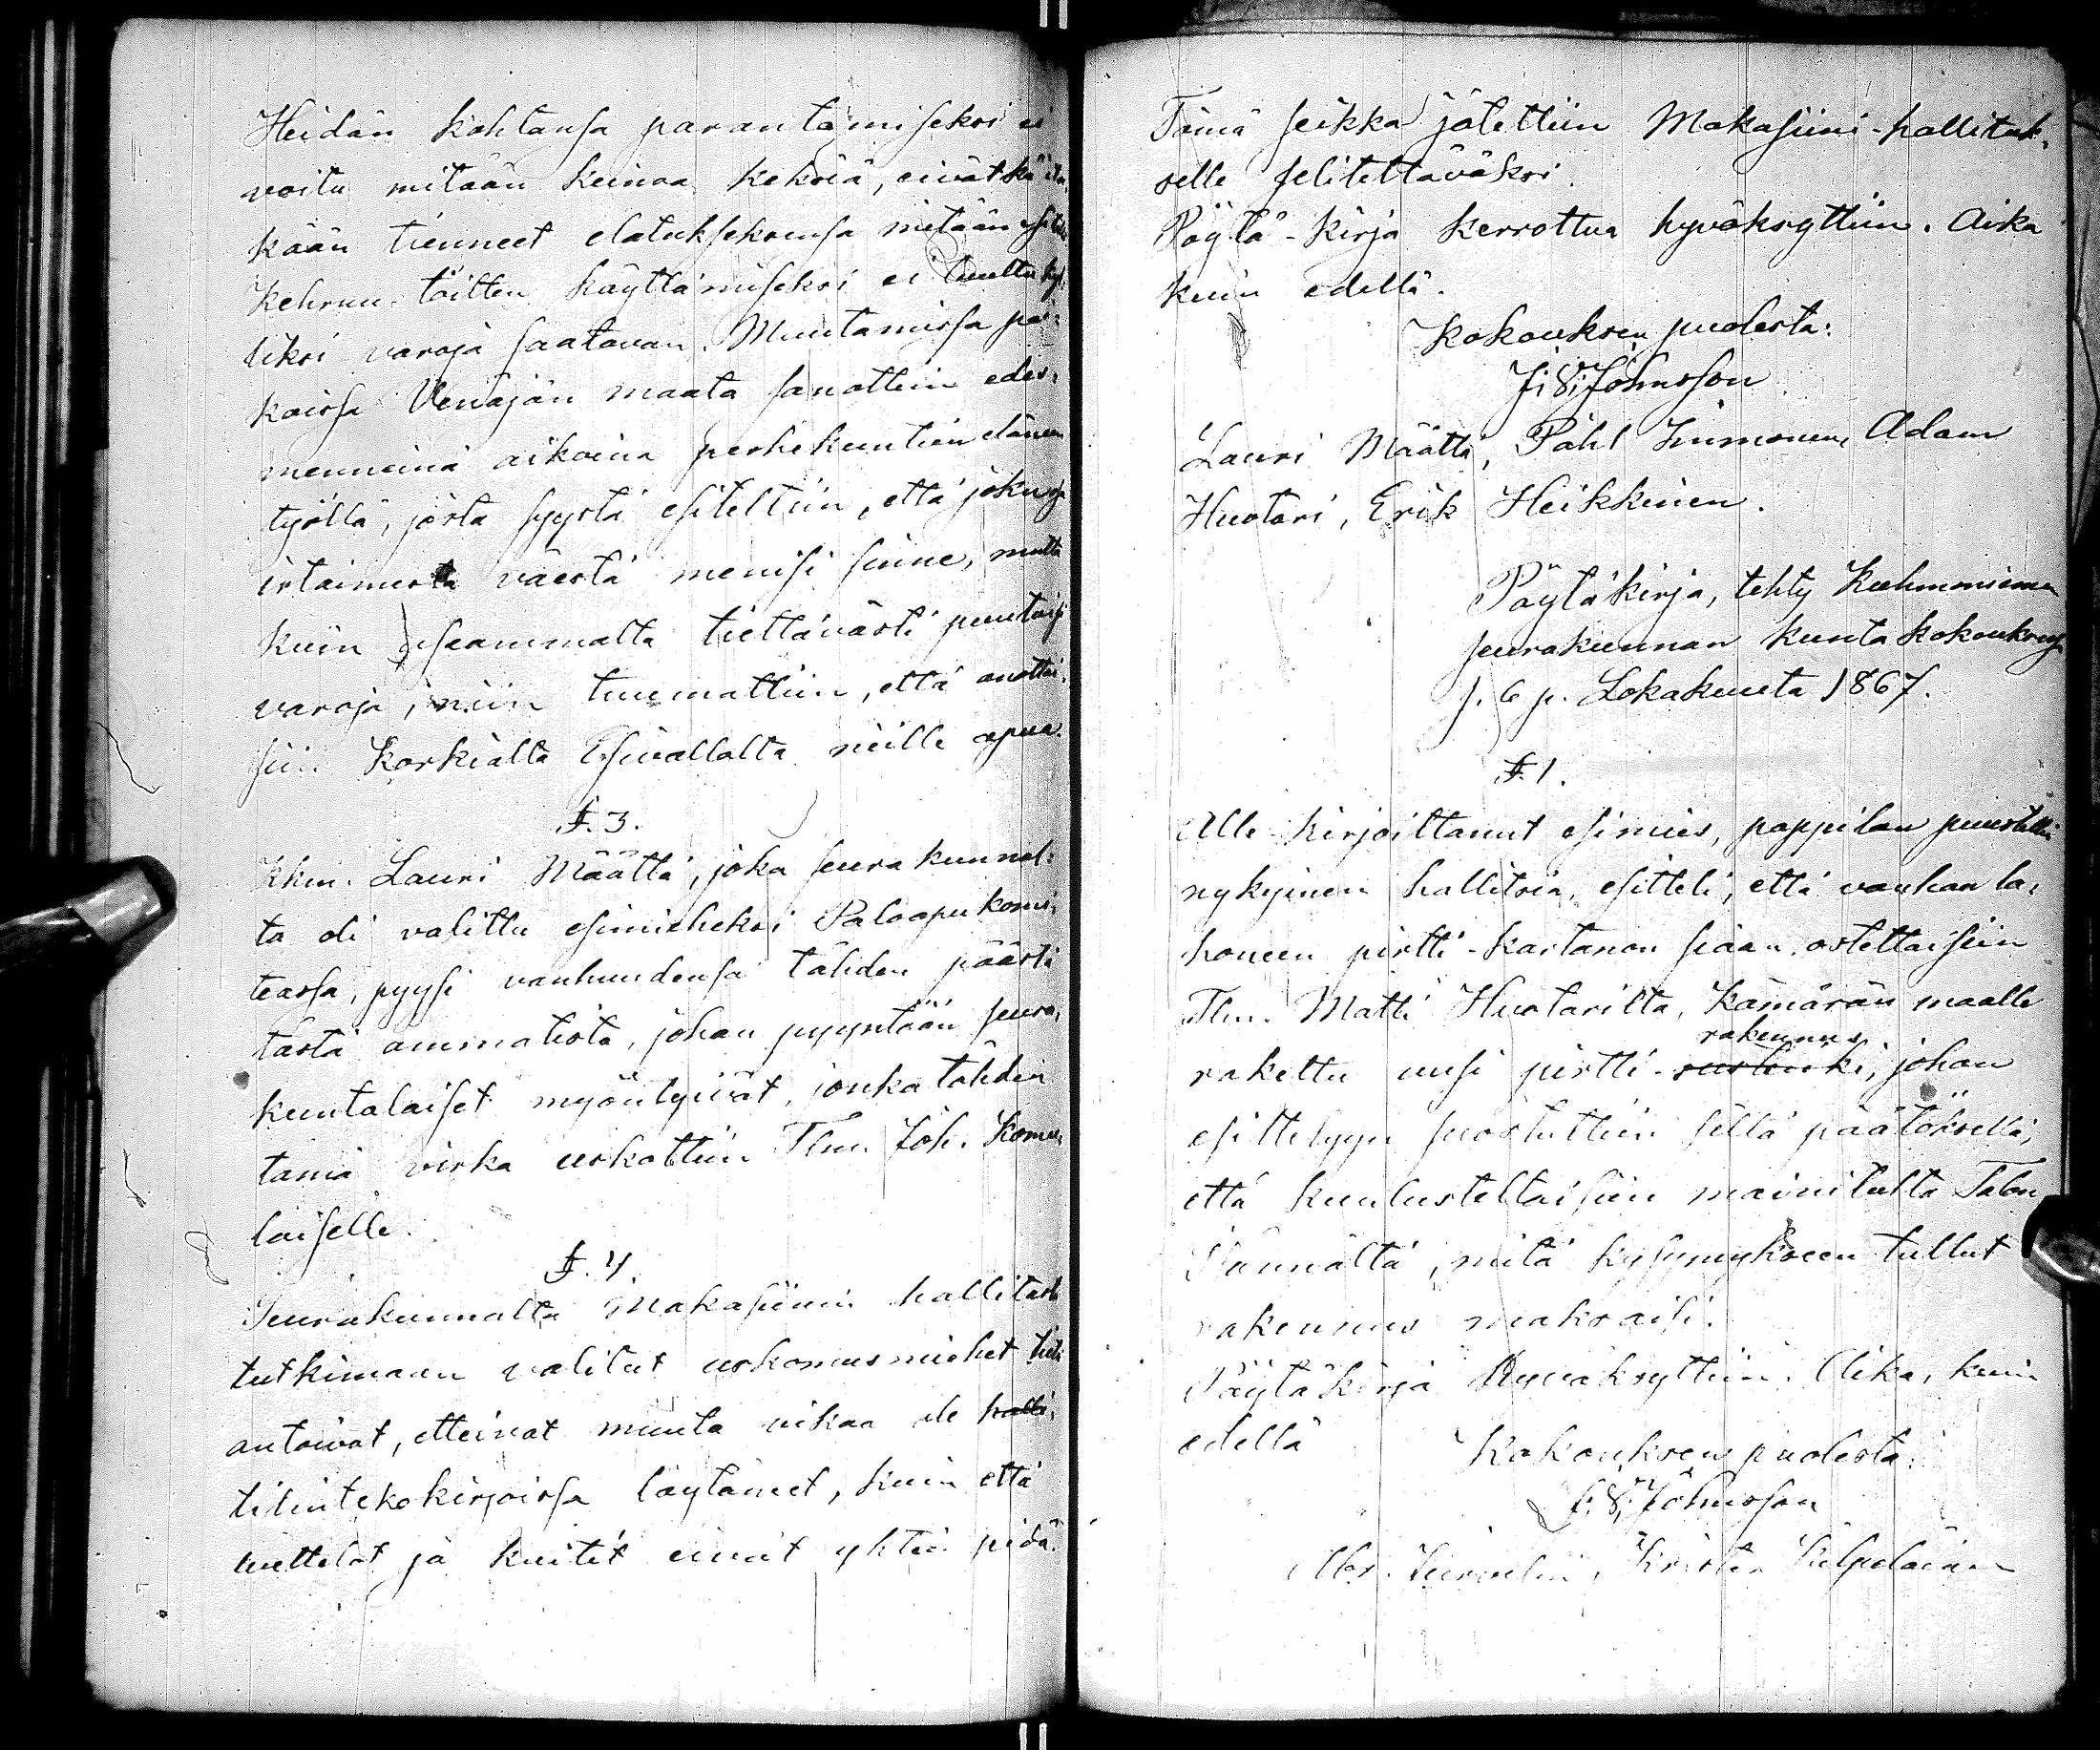 Heidän kohtansa parantamiseksi ei
voitu mitään keinoa keksiä, eivätkä it.
kään tienneet elatukseksensa mitään
Kehruu-töitten käyttämiseksi ei luultu
liksi varoja saatavan. Muutamissa pai-
koissa Venäjän maata sanottiin edes-
menneinä aikoina perhekuntien eläneen
työllä, josta syystä esiteltiin, että joku
irtaimesta väestä menisi sinne, mutta
kuin useammalta tiettävästi puutuisi
varoja, niin tuumattiin, että anottai-
siin Korkialta Esivallalta niille apua.
§. 3.
Kkm. Lauri Määttä, joka seurakunnal-
ta oli valittu esimieheksi Paloapukomi-
teassa, pyysi vanhuudensa tähden päästä
tästä ammatista, johan pyyntöön seura-
kuntalaiset myöntyivät, jonka tähden
tämä virka uskottiin Tlm. Joh. Komu-
laiselle.
§. 4.
Seurakunnalta Makasiinin hallitust
tutkimaan valitut uskomusmiehet tiet
antoivat, etteivät muuta vikaa ole halli-
tilintekokirjoissa löytäneet, kuin että
luettelot ja kuitit eivät yhtein pidä.
Tämä seikka jätettiin Makasiini-hallituk-
selle selitettäväksi.
Pöytä-kirja kerrottua hyväksyttiin. Aika
kuin edellä.
Kokouksen puolesta:
J. S. Johnsson
Lauri Määttä, Påhl Immonen, Adam
Huotari, Erik Heikkinen.
Pöytäkirja, tehty Kuhmoniemen
seurakunnan kuntakokouksesa
s. 6 p. Lokakuuta 1867.
§. 1.
Alle-kirjoittanut esimies, pappilan puustellin
nykyinen hallitsia, esitteli, että vanhan la-
honeen pirtti-kartanon siaan ostettaisiin
Tlm. Matti Huotarilta, Kämärän maalle
rakennus
rakettu uusi pirtti-rustinki, johan
esittelyyn suostuttiin sillä päätöksellä,
että kuulusteltaisiin mainitulta Talon
Isännältä, mitä kysymykseen tullut
rakennus maksaisi.
Pöytäkirja Hyväksyttiin. Aika, kuin
edellä
Kokouksen puolesta:
J. S. Johnsson
Krister Kilpeläinen